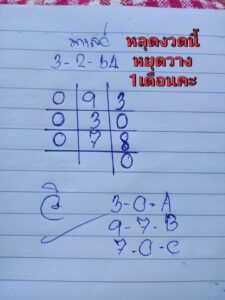 หลุดงวดนี้
หยุดวาง
1เดือนคะ
3-2-54
0 9 3
0 3 0
0 7 8
0
3-0-A
9-7-B
7-0-C